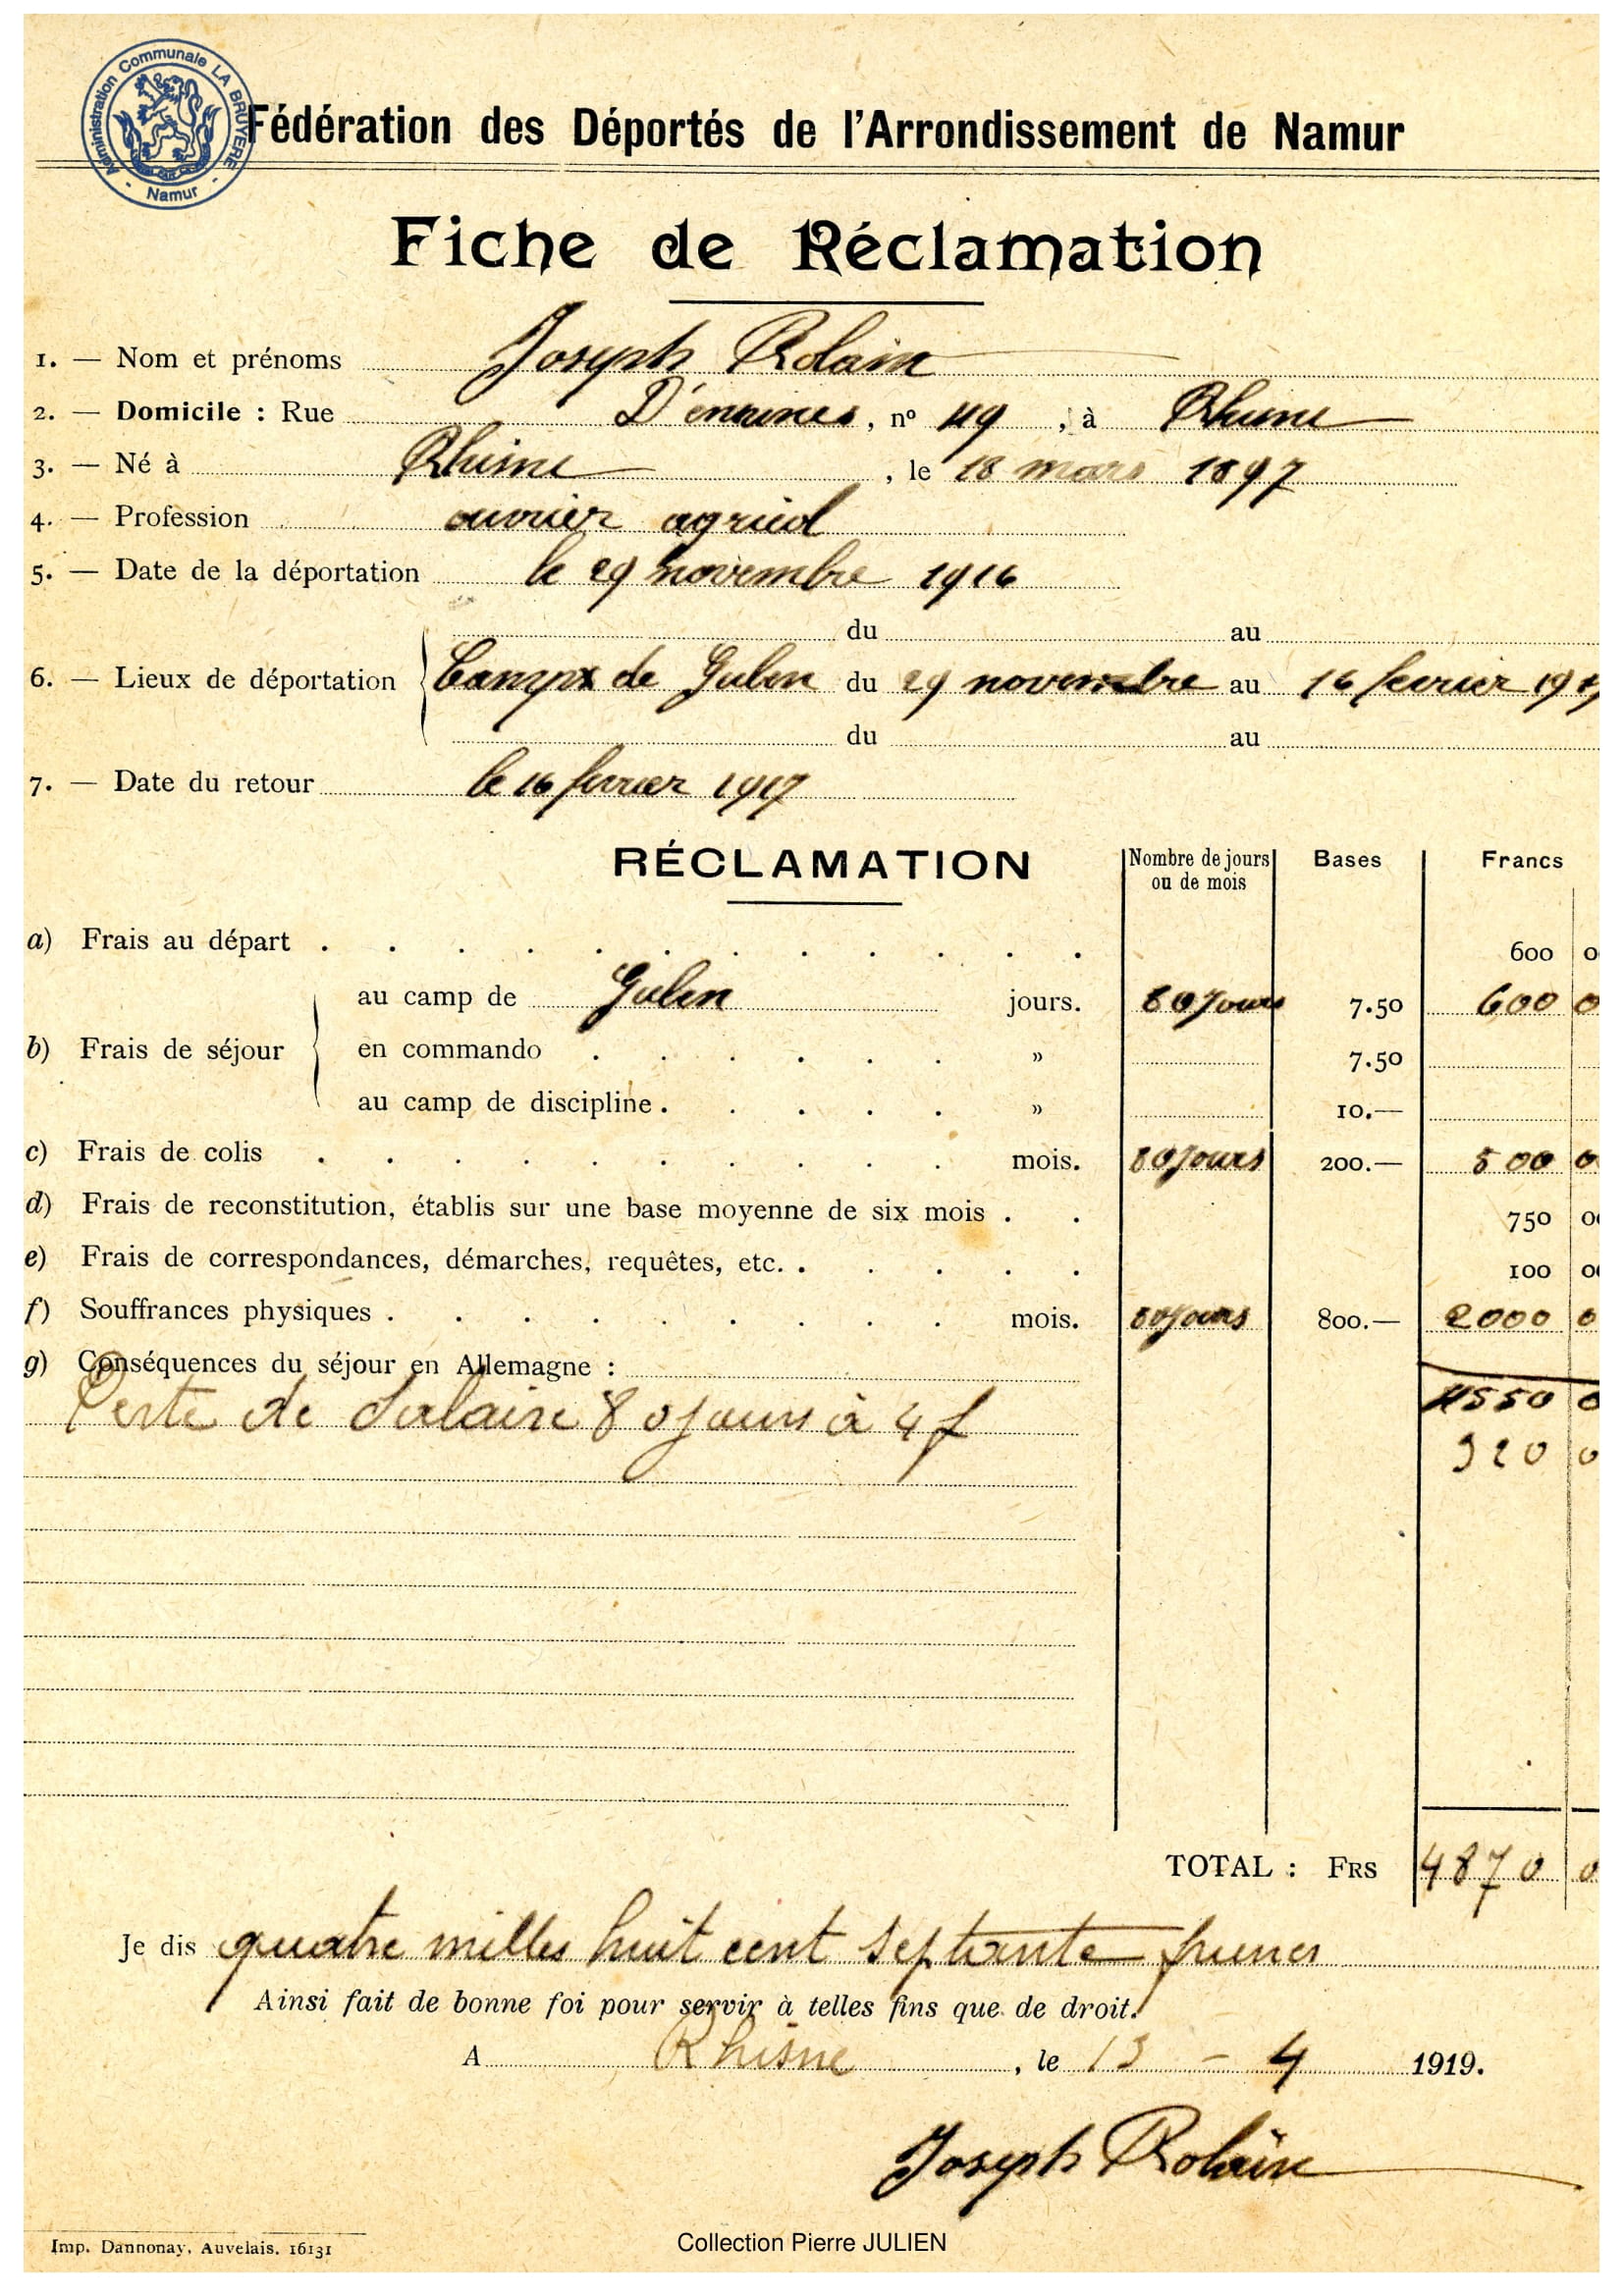 Administration Communale LA BRUYERE
- Namur -
Fédération des Déportés de l'Arrondissement de Namur
Fiche de Réclamation
1. — Nom et prénoms Joseph Rolain
2. — Domicile : Rue D'enines, nº 49, à Rhisne
3. — Né à Rhisne, le 18 mars 1897
4. — Profession ouvrier agricol
5. — Date de la déportation le 29 novembre 1916
du au
6. — Lieux de déportation Camps de Guben du 29 novembre au 16 fevrier 1917
du au
7. — Date du retour le 16 fevrier 1917
RÉCLAMATION Nombre de jours ou de mois Bases Francs
a) Frais au départ . . . . . . . . . . . . 600 0
au camp de Guben jours. 80 jours 7.50 600 0
b) Frais de séjour en commando . . . . . . » 7.50
au camp de discipline . . . . . » 10.—
c) Frais de colis . . . . . . . . . . mois. 80 jours 200.— 500 0
d) Frais de reconstitution, établis sur une base moyenne de six mois . . 750 0
e) Frais de correspondances, démarches, requêtes, etc. . . . . . 100 0
f) Souffrances physiques . . . . . . . . . mois. 80 jours 800.— 2000 0
g) Conséquences du séjour en Allemagne :
4550 0
Perte de Salaire 80 jours à 4 f
320 0
TOTAL : FRS 4870 0
Je dis quatre milles huit cent septante francs
Ainsi fait de bonne foi pour servir à telles fins que de droit.
A Rhisne, le 13 - 4 1919.
Joseph Rolain
Imp. Dannonay, Auvelais. 16131
Collection Pierre JULIEN